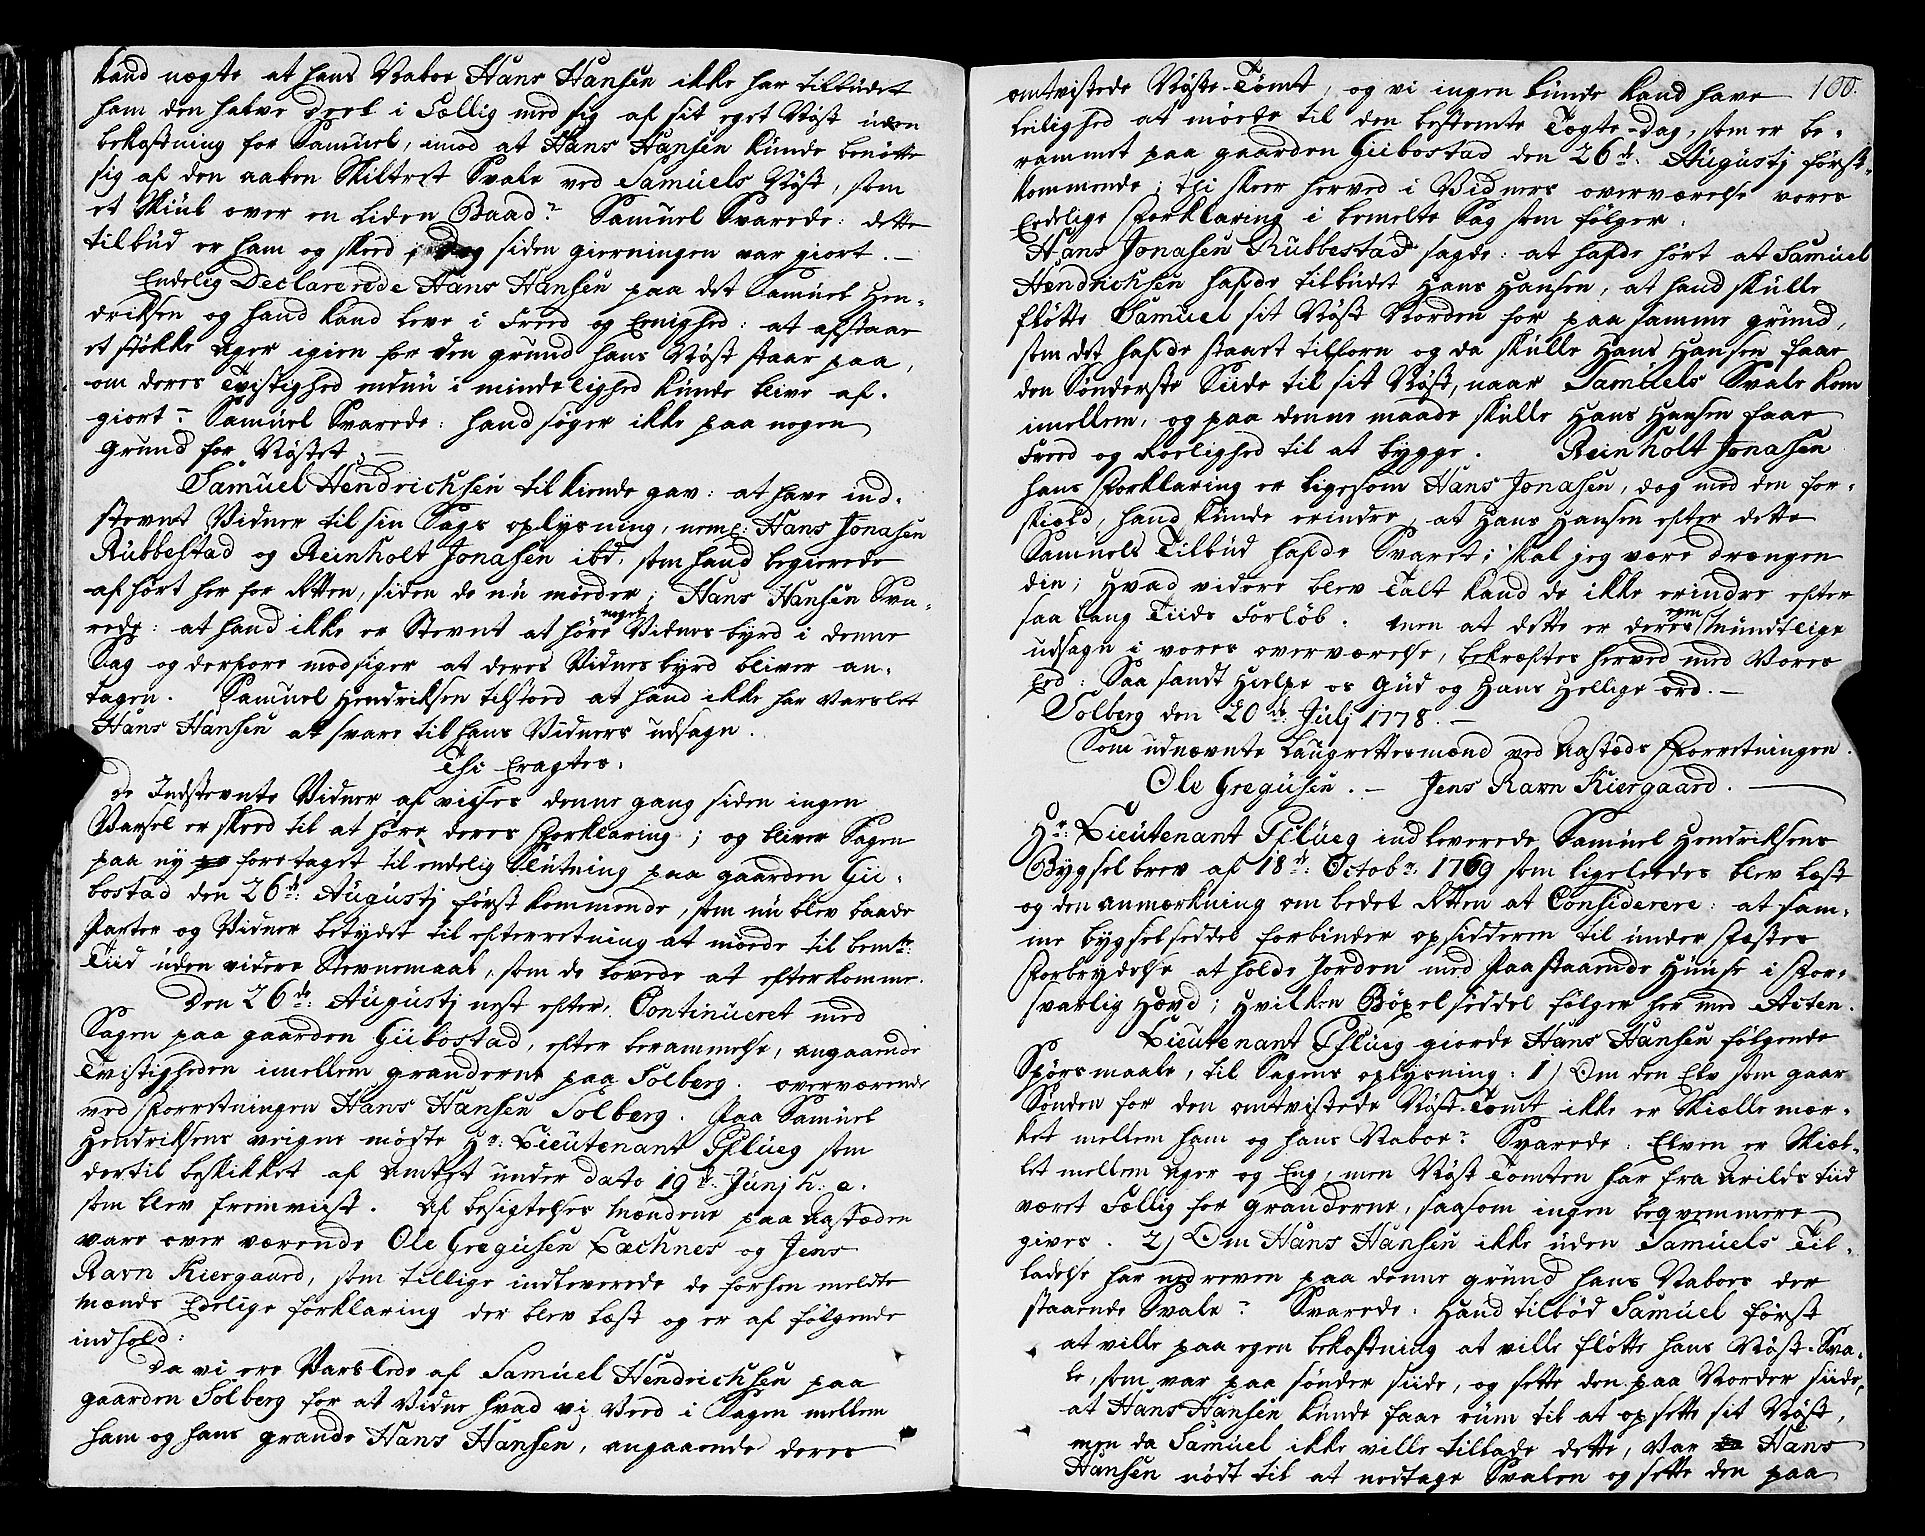 kand nægte at hans Naboe Hans Hansen ikke har tilbüdet
ham den halve deel i Fællig med sig af sit eget Nøst üden
bekostning for Samuel, imod at Hans Hansen künde benötte
sig af den aaben Skiltret Svale ved Samüels Nøst, som
et Skiul over en liden Baad? Samuel Svarede: dette
tilbüd er ham og skeed i Dag siden gierningen var giort. –
Endelig Declarerede Hans Hansen paa det Samüel Hen-
driksen og hand kand leve i Freed og Eenighed: at afstaae
et støkke ager igien for den grund hans Nøst staar paa,
om deres Tvistighed endnü i mindelighed künde blive af-
giort? Samüel Svarede: hand søger ikke paa nogen
grund for Nøstet. –
Samüel Hendrichsen tilkiende gav: at have ind-
stevnt Vidner til sin Sags oplysning, neml: Hans Jonasen
Rübbestad og Reinholt Jonasen ibd. som hand begierede
afhørt her for Retten, siden de nü møeder; Hans Hansen Sva-
rede: at hand ikke er Stevnt at høre noget Vidnes byrd i denne
Sag og derfore modsiger at deres Vidnesbyrd bliver an-
tagen. Samuel Hendriksen tilstoed at hand ikke har Varslet
Hans Hansen at svare til hans Vidners udsagn.
Thi Eragtes:
de Indstevnte Vidner afvises denne gang siden ingen
Varsel er skeed til at høre deres Forklaring; og bliver Sagen
paa ny foretaget til endelig Slutning paa gaarden Gii-
bostad den 26de Aügüstj først kommende, som nü blev baade
Parter og Vidner betydet til efterretning at møede til bemte
Tiid uden videre Stevnemaal, som de lovede at efterkomme.
Den 26de Aügüstj nest efter, Continüeret med
Sagen paa gaarden Giibostad, efter berammelse, angaaende
Tvistigheden imellem granderne paa Solberg. overværende
ved Forretningen Hans Hansen Solberg. Paa Samüel
Hendriksens veigne mødte Hr: Lieütenant Pflüeg som
dertil beskikket af Amtet under dato 19de Junj h: a:
som blev fremviist. Af besigtelses Mændene paa Aastæden
vare overværende Ole Gregüsen Lachnes og Jens
Ravn Kiergaard, som tillige indleverede de forhen meldte
Mænds Edelige forklaring der blev læst og er af følgende
indhold:
Da vi ere Varslede af Samüel Hendrichsen paa
gaarden Solberg for at Vidne hvad vi Veed i Sagen mellem
ham og hans grande Hans Hansen, angaaende deres
100.
omtvistede Nøste-Tømt, og vi ingen lünde kand have
leilighed at møede til den bestemte Tægte-dag, som er be-
rammet paa gaarden Giibostad den 26de Aügüstj først-
kommende; thi skeer herved i Vidners overværelse vores
Eedelige Forklaring i bemelte Sag som følger:
Hans Jonasen Rübbestad sagde: at hafde hørt at Samüel
Hendrichsen hafde tilbüdet Hans Hansen, at hand skulle
fløtte Samuel sit Nøst Norden for paa samme grund,
som det hafde staaet tilforn og da skulle Hans Hansen faae
den Sønderste Siide til sit Nøst, naar Samüels Svale kom
imellem, og paa denne maade skulle Hans Hansen faae
Freed og Roelighed til at bygge. Reinholt Jonasen
hans Forklaring er ligesom Hans Jonasen, dog med den for-
skiæld, hand künde erindre, at Hans Hansen efter dette
Samüels Tilbüd hafde Svaret; skal jeg være drængen
din; Hvad videre blev Talt kand de ikke erindre efter
saa lang Tiids Forløb. Men at dette er deres egen Mundtlige
udsagn i vores overværelse, bekræftes herved med Vores
Eed: Saa sandt hielpe os Güd og Hans Hellige ord. –
Solberg den 20de Julj 1778. –
Som udnævnte Laugrettesmænd ved Aastæds Forretningen.
Ole Gregüsen. – Jens Ravn Kiergaard.
Hr: Lieütenant Pflüeg indleverede Samüel Hendriksens
Bygselbrev af 18de Octobr: 1769 som ligeleedes blev læst
og den anmærkning om bedet Retten at Considerere: at sam-
me bygselseddel forbinder opsidderen til under Fæstes
Forbrydelse at holde Jorden med Paastaaende Huuse i For-
svarlig Hævd; hvilken Böxelseddel følger her med Acten.
Lieütenant Pflüeg giorde Hans Hansen følgende
Spørsmaale, til Sagens oplysning: 1) Om den Elv som gaar
Sønden for den omtvistede Nøst-Tomt ikke er Skiællemær-
ket mellem ham og hans Naboe? Svarede: Elven er Skiæl-
let mellem ager og Eng, men Nøst Tomten har fra Arilds tiid
været Fællig for granderne, saasom ingen beqvemmere
gives. 2) Om Hans Hansen ikke uden Samüels Til-
ladelse har nedreven paa denne gründ hans Naboes der
staaende Svale? Svarede: Hand tilbød Samüel først
at ville paa egen bekostning at ville fløtte hans Nøst-Sva-
le, som var paa sønder siide, og sette den paa Norder siide,
at Hans Hansen künde faae rüm til at opsette sit Nøst,
men da Samüel ikke ville tillade dette, var Hans
Hansen nødt til at nedtage Svalen og sette den paa